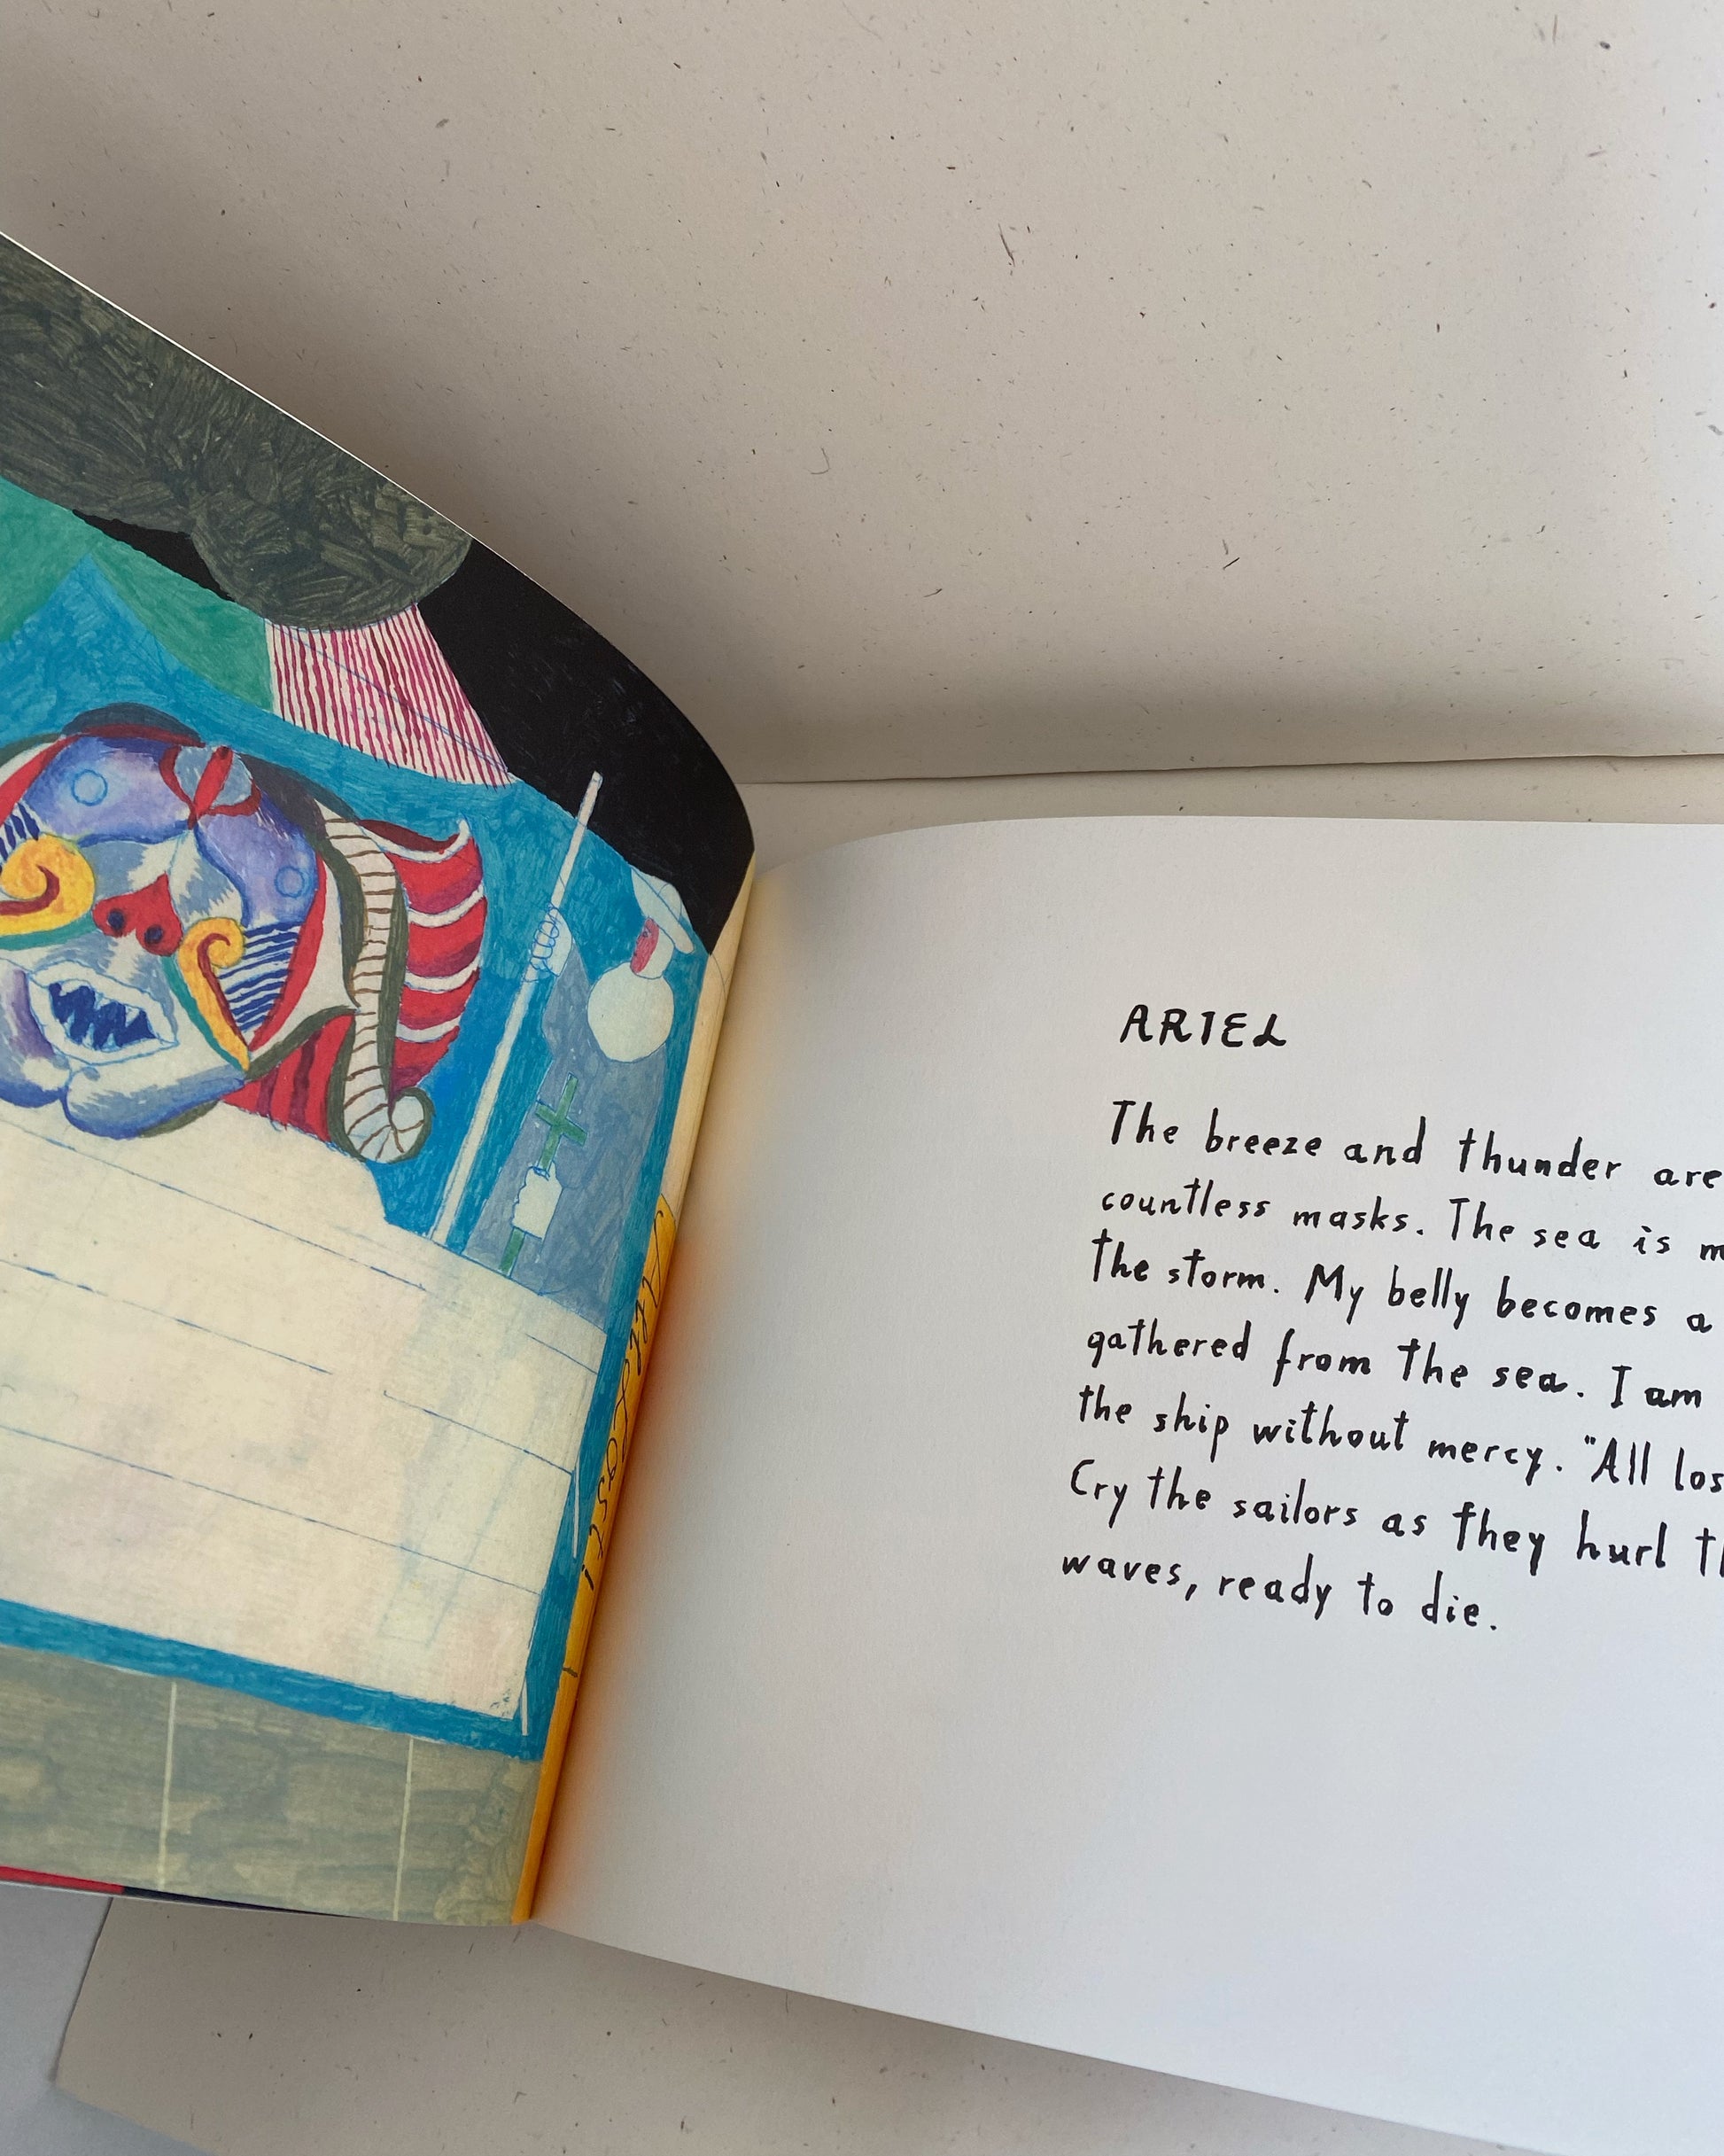 All lost!
ARIEL
The breeze and thunder are
countless masks. The sea is
the storm. My belly becomes a
gathered from the sea. I am
the ship without mercy. "All
Cry the sailors as they hurl
waves, ready to die.